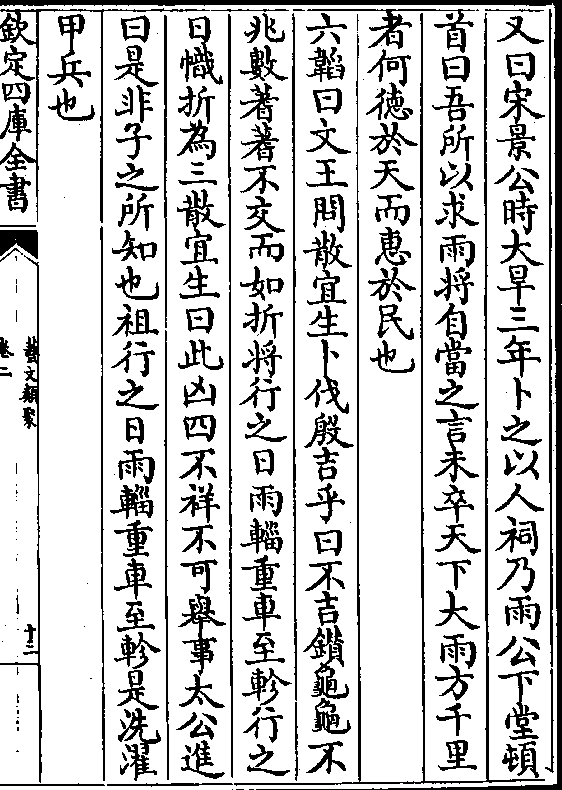 又曰宋景公時大旱三年卜之以人祠乃雨公下堂頓
首曰吾所以求雨将自當之言未卒天下大雨方千里
者何徳於天而惠於民也
六韜曰文王問散宜生卜伐殷吉乎曰不吉鑚龜龜不
兆數蓍蓍不交而如折将行之日雨輜重車至軫行之
日幟折為三散宜生曰此凶四不祥不可舉事太公進
曰是非子之所知也祖行之日雨輜重車至軫是洗濯
甲兵也
欽定四庫全書
藝文類聚
卷二
十三